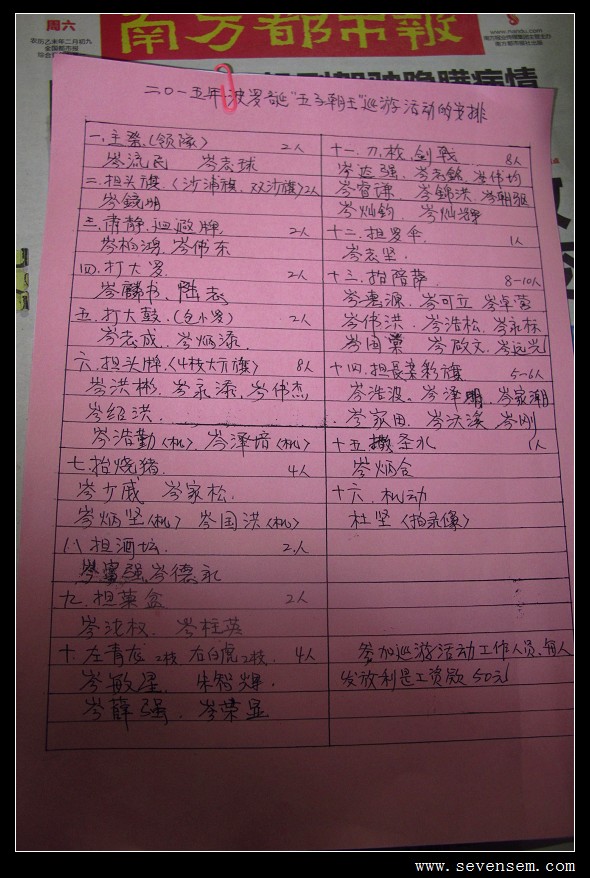 周六
农历乙未年二月初九
南方都市报
www.nandu.com
二0一五年波罗诞"五子朝王"巡游活动的安排
一.主祭.(领隊) 2人
岑流民 岑志球
二.担头旗.(沙浦旗.双沙旗)2人
岑鏡明
三.肃静.迴避牌 2人
岑柏鸿.岑伟东
四.打大罗. 2人
岑麟书. 陆志
五.打大鼓.(包小罗) 2人
岑志成.岑炳添.
六.担头牌.(4枝大方旗) 8人
岑洪彬.岑永添.岑伟杰
岑绍洪.
岑浩勤(机).岑泽培(机)
七.抬烧猪. 4人
岑少威 岑家松.
岑炳坚(机) 岑国洪(机)
八.担酒坛. 2人
强.岑德永
九.担菓盒 2人
岑沈权. 岑柱英
十.左青龙2枝.右白虎2枝. 4人
岑敏星. 朱智辉.
岑薛强. 岑荣显
十一.刀.枚.剑.戟 8人
岑达强.岑志銘.岑伟均
岑容谦.岑錦洪.岑朝驱
岑灿钧. 岑灿辉
十二.担罗伞. 1人
岑志坚.
十三.抬陪菩. 8-10人
岑惠源.岑可立.岑卓荣
岑伟洪.岑浩松.岑永标
岑国棠 岑啟文.岑远光
十四.担長条彩旗. 5-6人
岑浩波.岑泽明.岑家潮
岑家田.岑沃溪.岑刚
十五.撒圣水 1人
岑炳合
十六.机动
杜坚(拍录像)
参加巡游活动工作人员.每人
发放利是工资款50元
www.sevensem.com